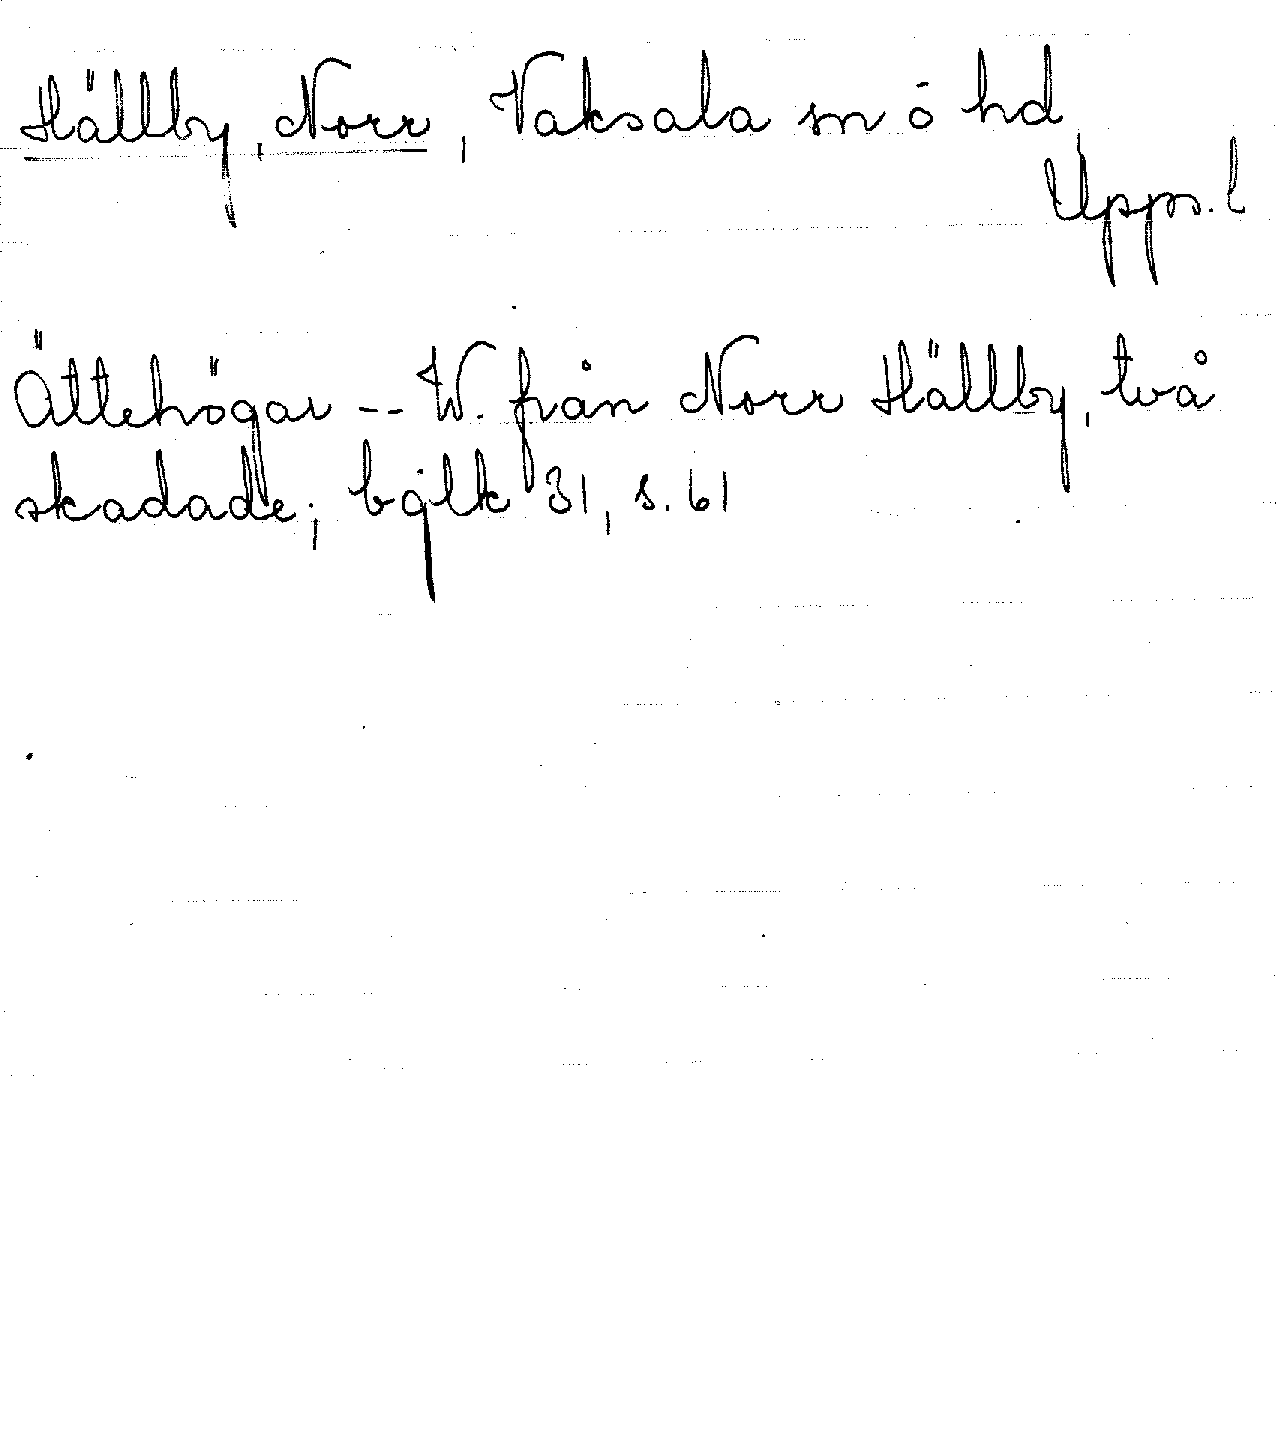 Hällby, Norr, Vaksala sn ō hd,
Upps. l
Ättehögar -- W. från Norr Hällby, två
skadade; bgtk 31, s. 61